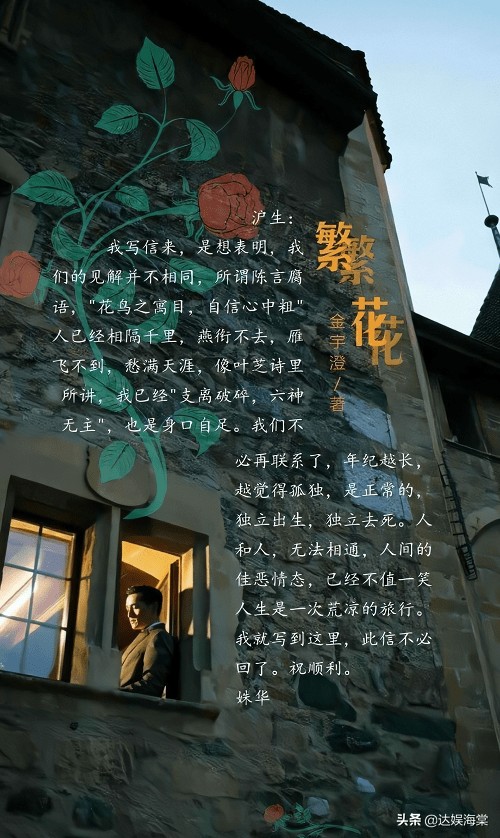 沪生：
我写信来，是想表明，我
们的见解并不相同，所谓陈言腐
语，"花鸟之寓目，自信心中粗"
人已经相隔千里，燕衔不去，雁
飞不到，愁满天涯，像叶芝诗里
所讲，我已经"支离破碎，六神
无主"，也是身口自足。我们不
必再联系了，年纪越长，
越觉得孤独，是正常的，
独立出生，独立去死。人
和人，无法相通，人间的
佳恶情态，已经不值一笑
人生是一次荒凉的旅行。
我就写到这里，此信不必
回了。祝顺利。
姝华
繁繁
花花
金宇澄/著
头条 @达娱海棠